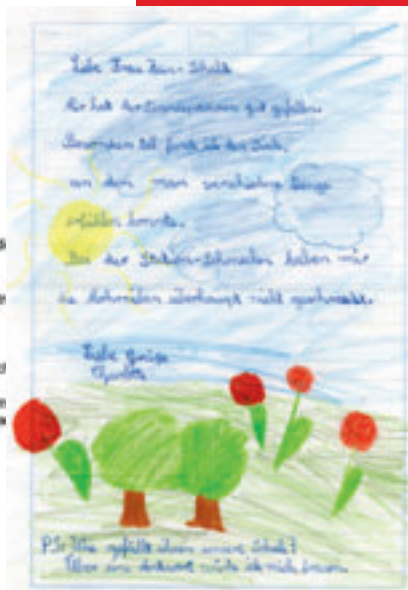 Liebe Frau
Mir hat gut gefallen.
Besonders toll fand ich den Tisch,
an dem man verschiedene Dinge
erfühlen konnte.
Bei der Station-Schmecken haben mir
die überhaupt nicht geschmeckt.
Liebe Grüße
P.S: Wie gefällt ihnen unsere Schule?
Über eine Antwort würde ich mich freuen.